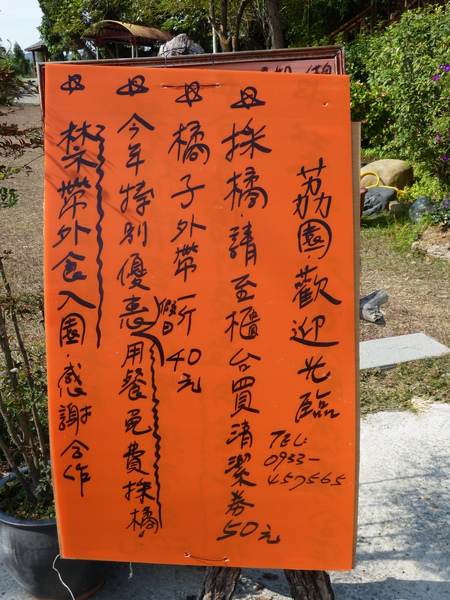 荔園歡迎光臨
TEL:
0953-
457565
採橘.請至櫃台買清潔券50元
橘子外帶一斤40元
今年特別優惠假日用餐免費採橘
禁帶外食入園.感謝合作